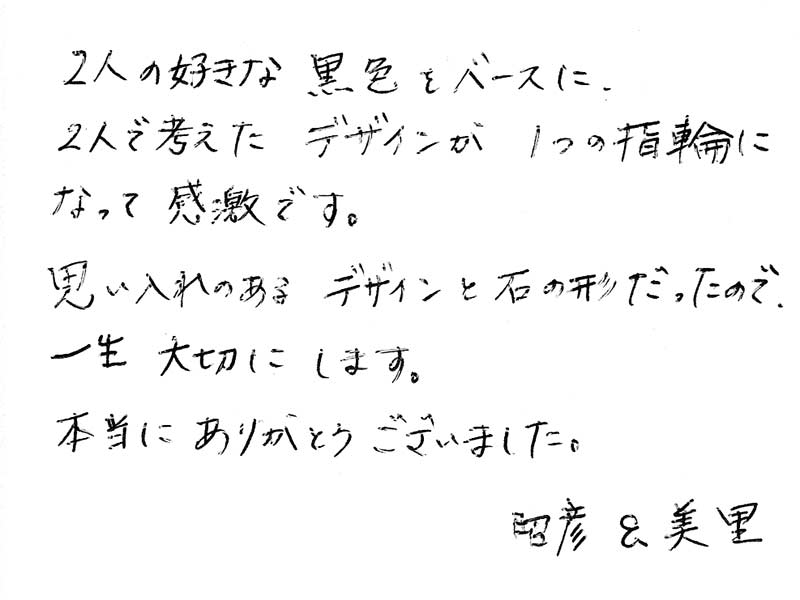 2人の好きな黒色をベースに、
2人で考えた デザインが 1つの指輪に
なって 感激です。
思い入れのある デザインと石の形だったので、
一生 大切にします。
本当に ありがとう ございました。
昭彦 & 美里